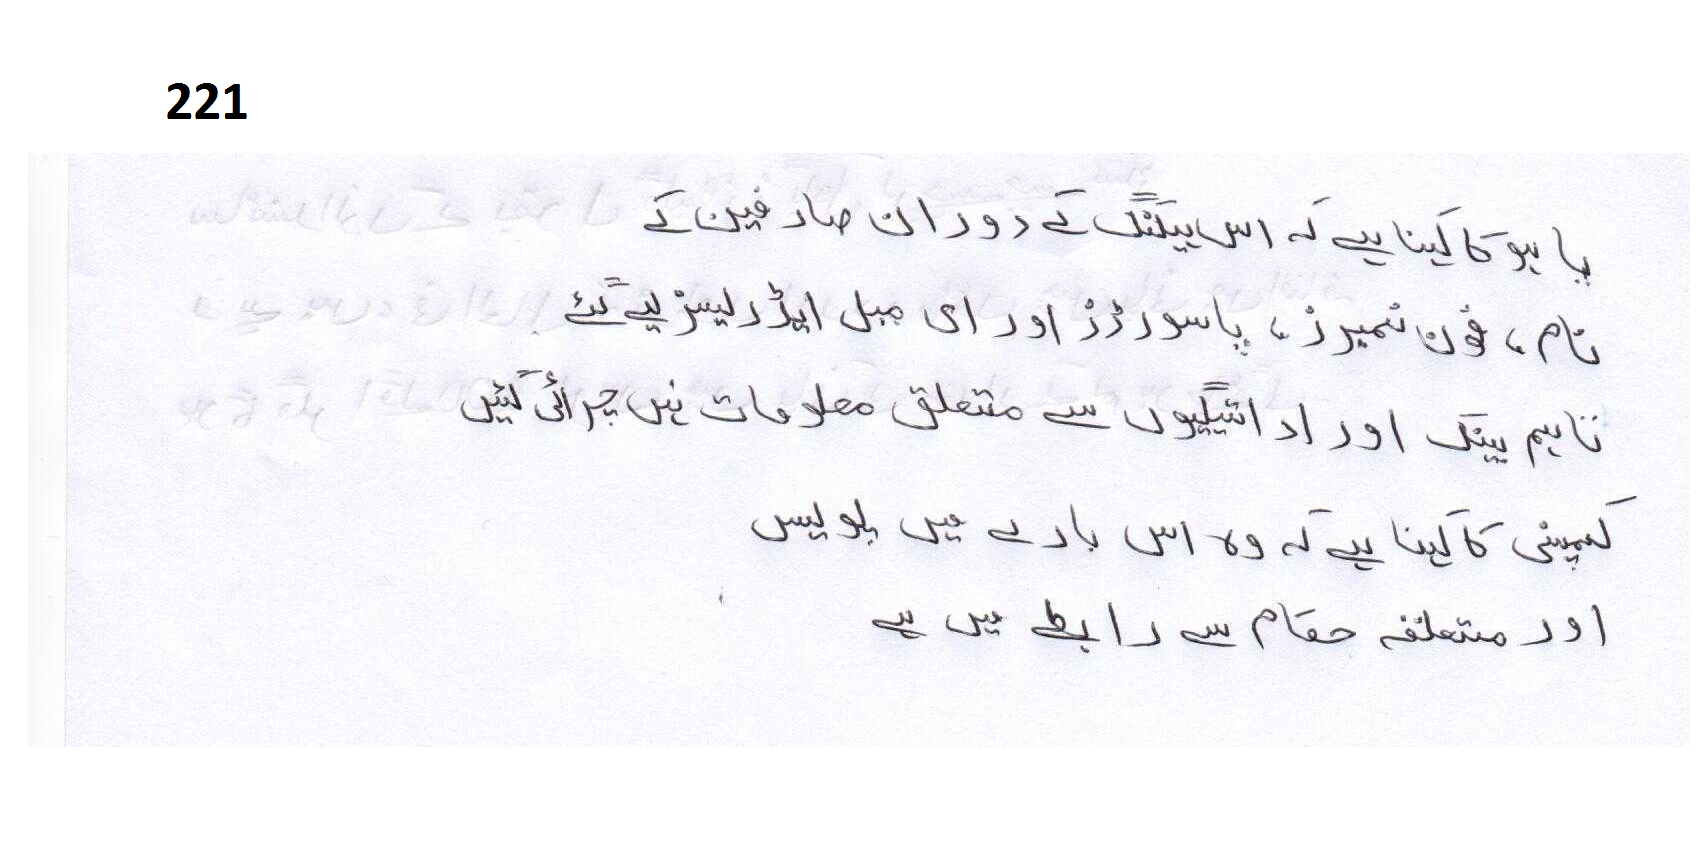 221
یا ہو کا کہنا ہے کہ اس ہیکنگ کے دوران صارفین کے
نام، فون نمبرز، پاسورڈز اور ای میل ایڈریسز لیے گئے
تاہم بینک اور ادائیگیوں سے متعلق معلومات نہیں چرائی گئیں
کمپنی کا کہنا ہے کہ وہ اس بارے میں پولیس
اور متعلقہ حکام سے رابطے میں ہے